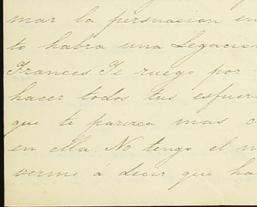 mar la persuasion en
to habra una Legacio
Frances Te ruego, por
hacer todos tus esfuer
que te parezca mas c
en ella. No tengo el m
verme á decir que ha